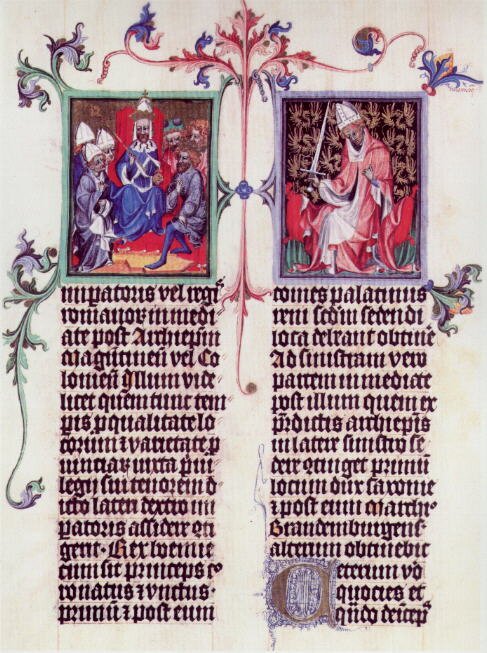 imperatoris vel regꝭ
romanoꝝ in medi
ate post Archiepm̅
Magutineñ vel Co
lonieñ Illum vide
licet quem tunc tem
poris ꝓ qualitate lo
corum ⁊ varietate ꝓ
uinciaꝝ iuxta priui
legy sui tenorem di
cto lateri dextro im
peratoris assidere cōti
gerit. Rex boemie
cum sit princeps co
ronatus ⁊ vnctus
primum ⁊ post eum
comes palatinus
reni scd̅m sedendi
loca debeant obtin̅e
Ad sinistram vero
partem in mediate
post illum quem ex
p̅dictis archiep̅is
in latere sinistro se
dere cōtiget primū
locum dux saxonie
⁊ post eum march̅
Brandemburgens̅
alterum obtinebit
Ceterum vō
quocies et
qn̅do deicep̅